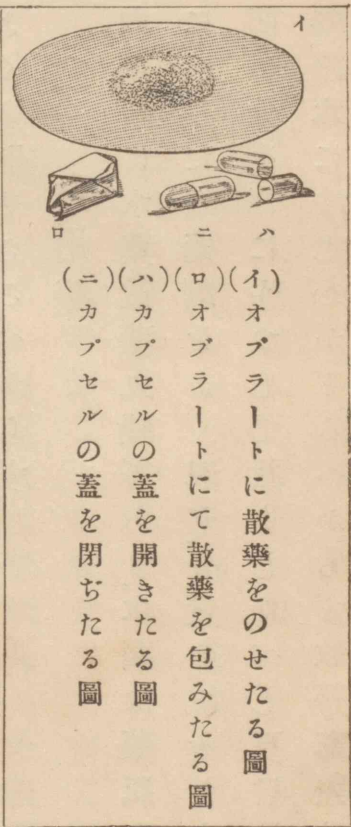 イ
ハ
ニ
ロ
(イ)オブラートに散藥をのせたる圖
(ロ)オブラートにて散藥を包みたる圖
(ハ)カプセルの蓋を開きたる圖
(ニ)カプセルの蓋を閉ぢたる圖